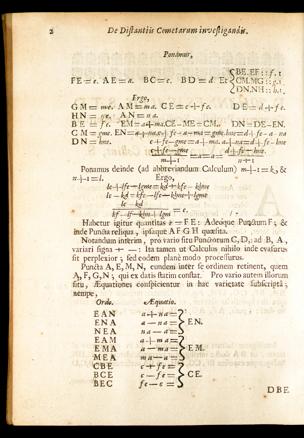 2 De Distantiis Cometarum investigandis.
Ponamur,
FE = e. AE = a. BC = c. BD = d. Et { BE. EF :: f. 1
CM. MG :: g. 1
DN. NH :: h. 1.
Ergo,
GM = me. AM = ma. CE = c + fe. DE = d + fe.
HN = ne. AN = na.
BE = fe. EM = a + ma. CE - ME = CM. DN = DE - EN.
CM = gme. EN = a + na. c + fe - a - ma = gme. hne = d + fe - a - na
DN = hne. c + fe - gme = a + ma. a + na = d + fe - hne
Ponamus deinde (ad abbreviandum Calculum) m + 1 = k, &
n + 1 = l. Ergo,
lc + lfe - lgme = kd + kfe - khne
lc - kd = kfe - lfe - khne + lgme
lc - kd
= e.
Habetur igitur quantitas e = FE: Adeoque Punctum F; &
inde Puncta reliqua, ipsaque A F G H quæsita.
Notandum interim, pro vario situ Punctorum C, D; ad B, A,
variari signa + — : Ita tamen ut Calculus nihilo inde evasurus
sit perplexior; sed eodem planè modo processurus.
Puncta A, E, M, N, eundem inter se ordinem retinent, quem
A, F, G, N; qui ex datis statim constat. Pro vario autem illorum
situ, Æquationes conspicientur in hac varietate subscriptâ;
nempe,
Ordo. Æquatio.
EAN a + na =
ENA a - na = } EN.
NEA na - a =
EAM a + ma =
EMA a - ma = } EM.
MEA ma - a =
CBE c + fe =
BCE c - fe = } CE.
BEC fe - c =
DBE